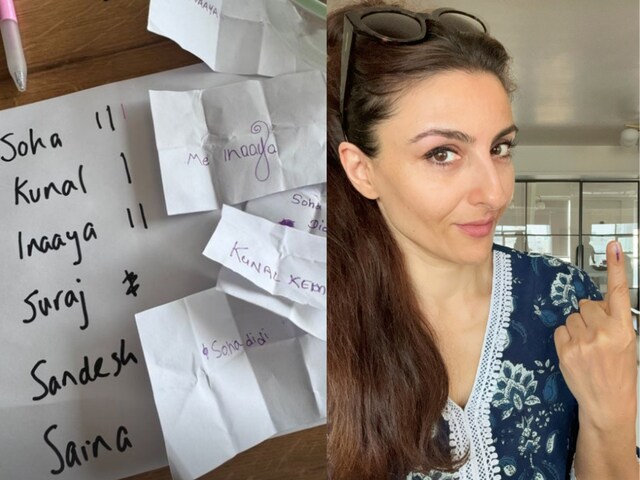 Soha
Kunal
Inaaya
Suraj
Sandesh
Saina
Me inaaya
Soha
KUNAL KEM
Soha didi